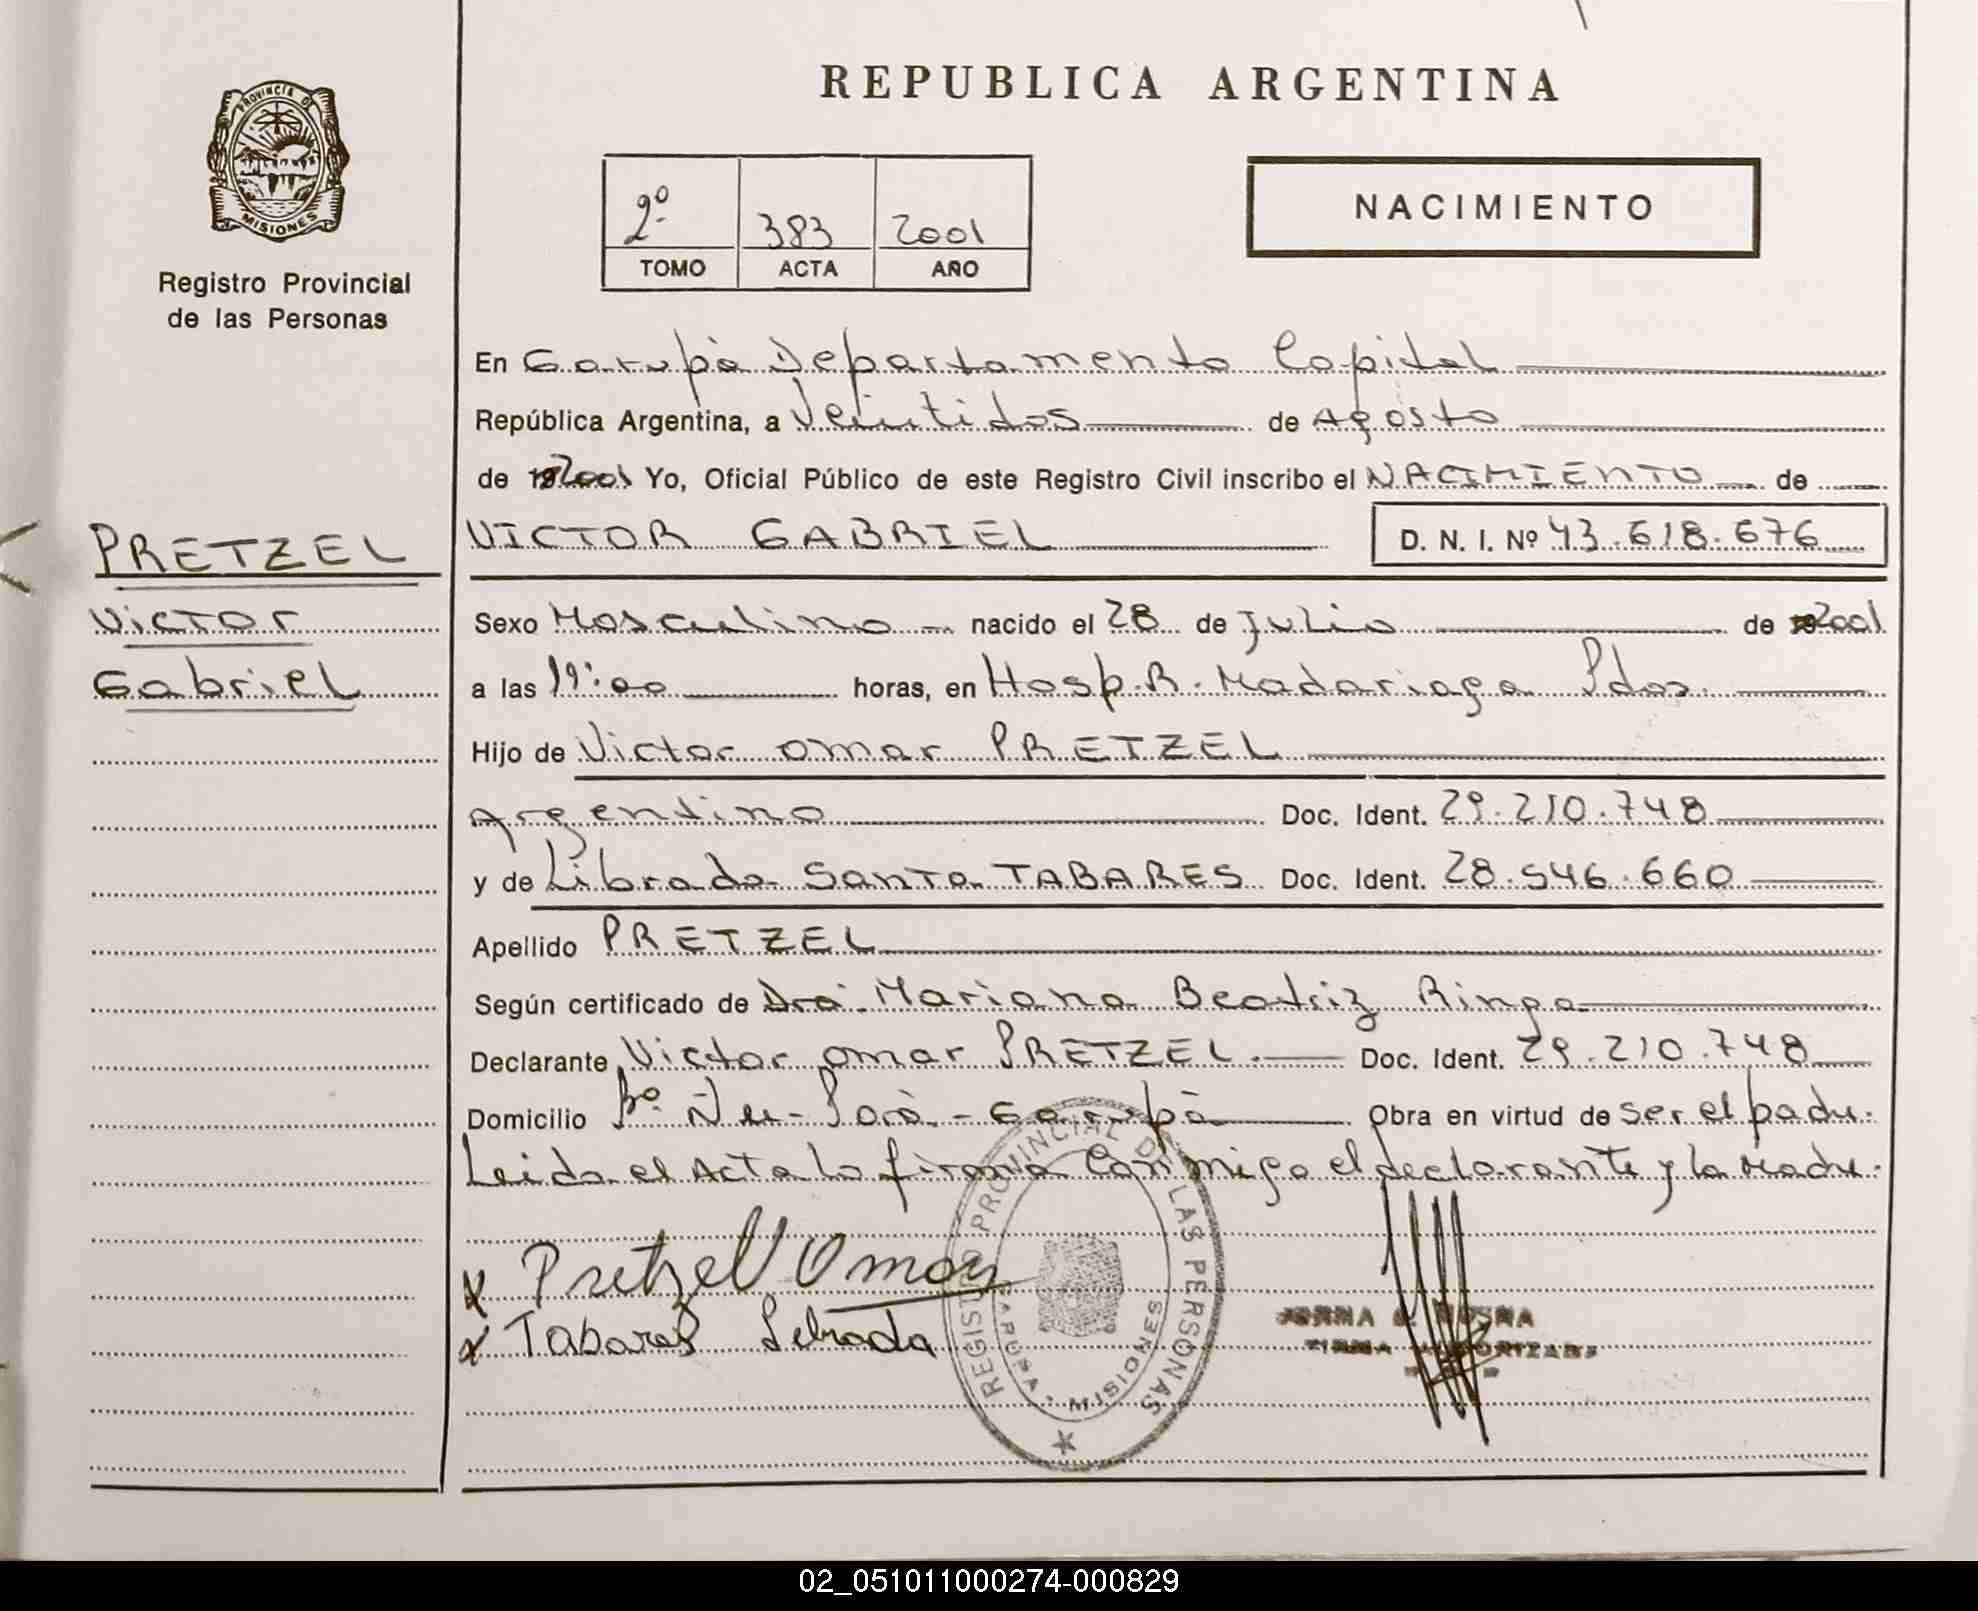 REPUBLICA ARGENTINA
PROVINCIA DE
MISIONES
Registro Provincial
de las Personas
2º 383 2001
TOMO ACTA AÑO
NACIMIENTO
En Garupà Departamento Capital
República Argentina, a Veintidos de Agosto
de 2001 Yo, Oficial Público de este Registro Civil inscribo el NACIMIENTO de
PRETZEL
Victor
Gabriel
VICTOR GABRIEL D. N. I. Nº 43.618.676
Sexo Masculino nacido el 28 de Julio de 2001
a las 19:00 horas, en Hosp. R. Madariaga Pdas.
Hijo de Victor Omar PRETZEL
Argentino Doc. Ident. 29.210.748
y de Librada Santa TABARES Doc. Ident. 28.546.660
Apellido PRETZEL
Según certificado de Dra. Mariana Beatriz Ringa
Declarante Victor Omar PRETZEL. Doc. Ident. 29.210.748
Domicilio Bº. Ñu-Porà - Garupà Obra en virtud de ser el padre.
Leida el Acta la firman Conmigo el declarante y la Madre.
x Pretzel Omar
x Tabares Librada
REGISTRO PROVINCIAL DE LAS PERSONAS
GARUPA - MISIONES
FIRMA AUTORIZADA
02_051011000274-000829